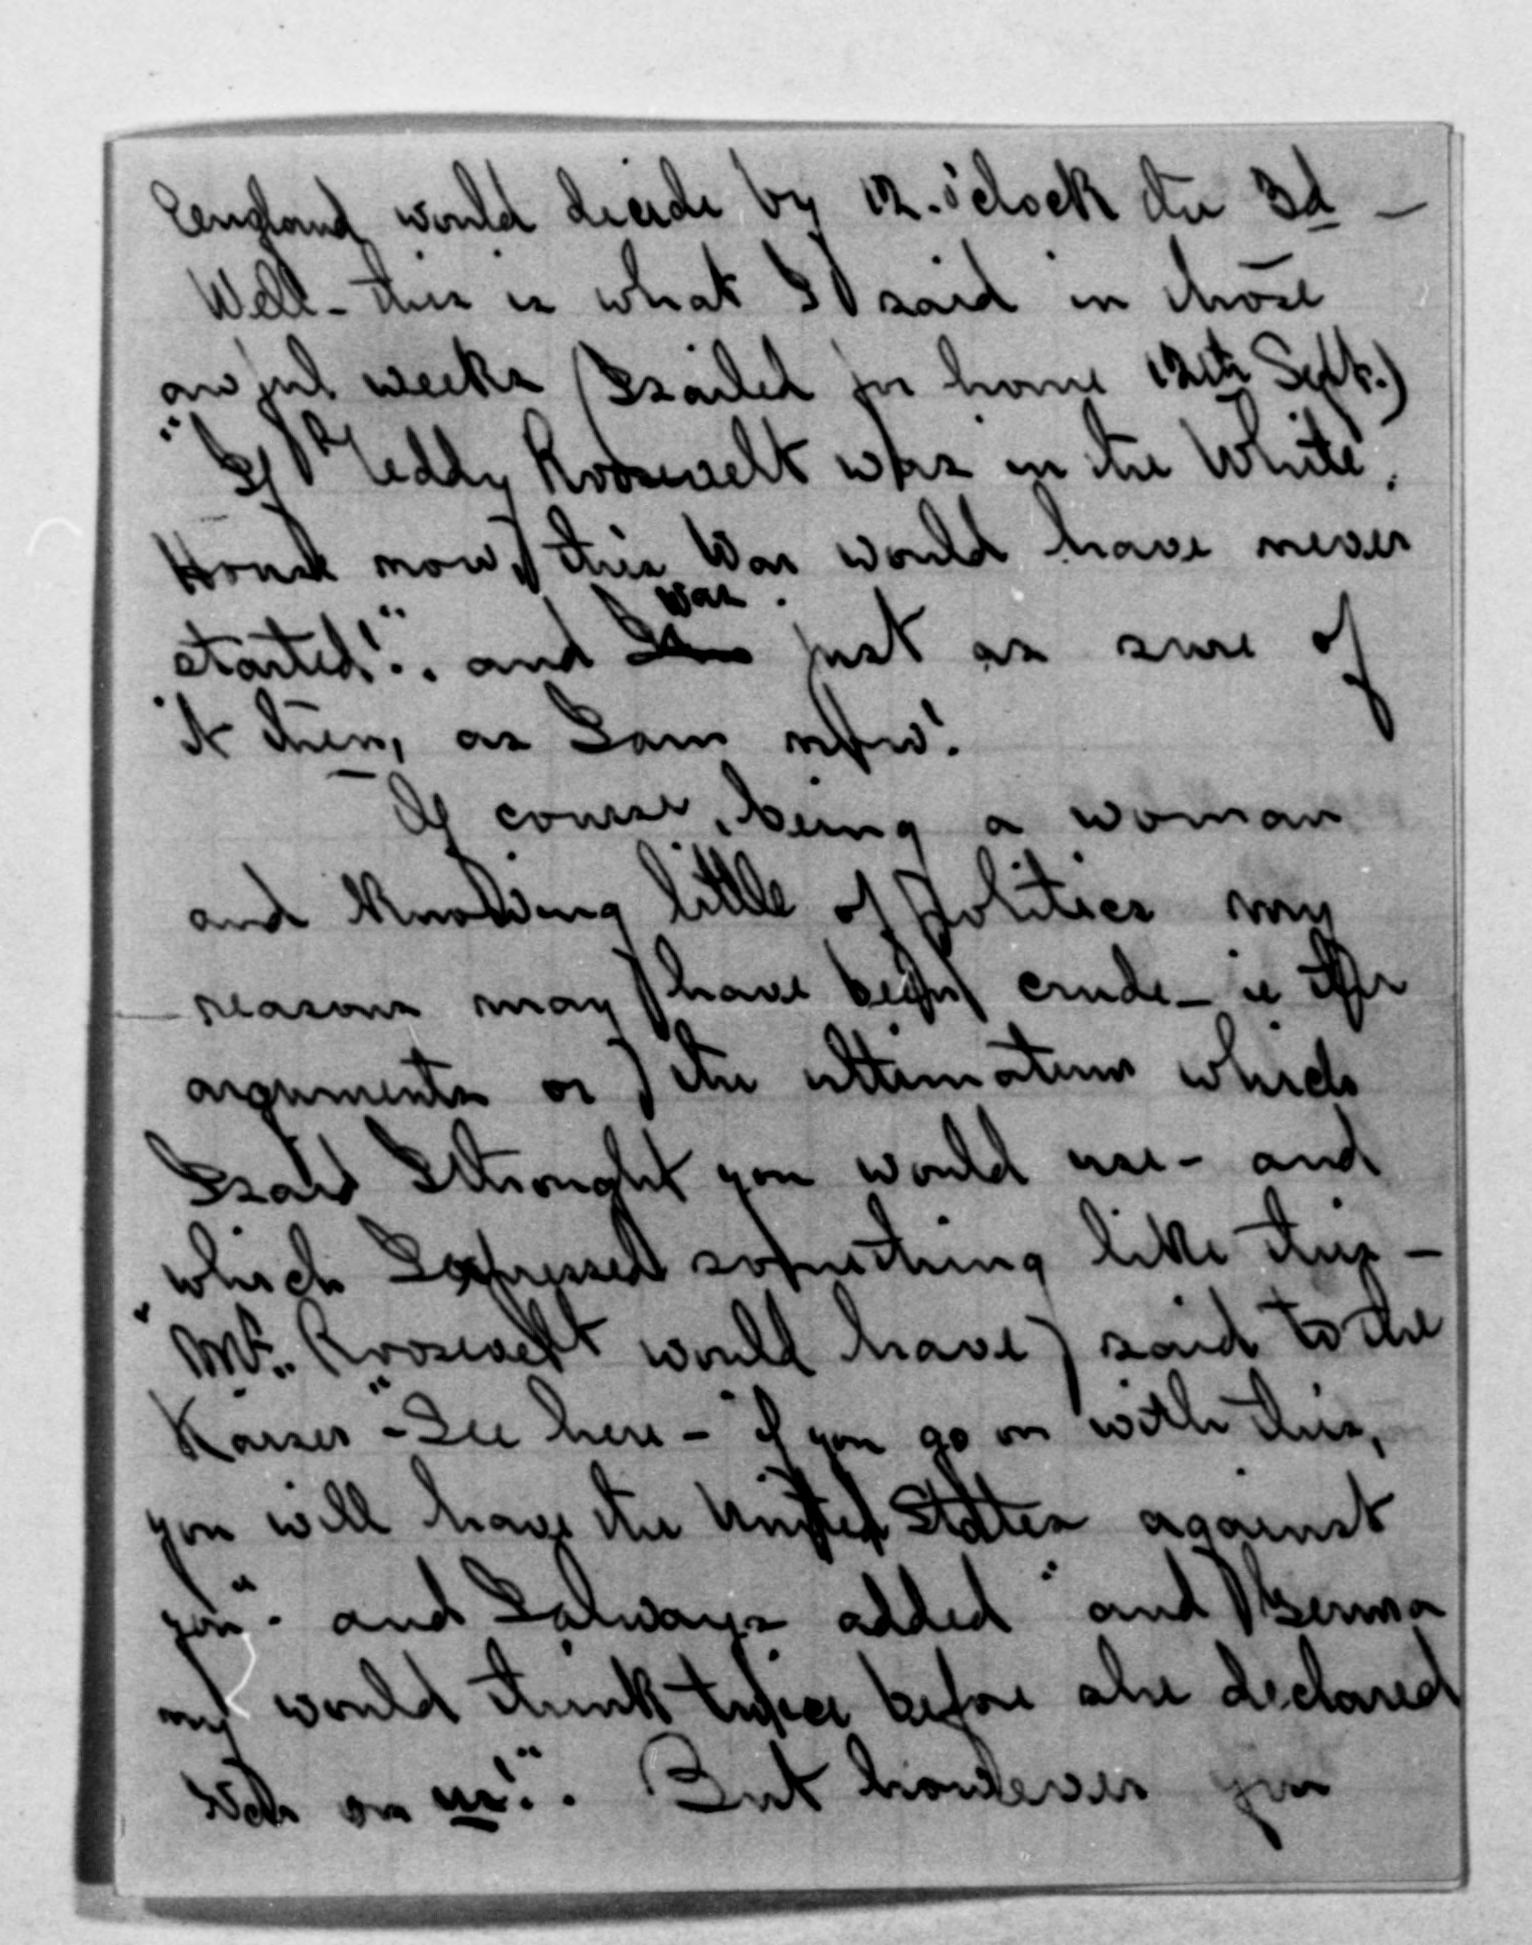 England would decide by 12. o'clock the 3d —
Well - this is what I said in those
awful weeks (I sailed for home 12th Sept.)
"If Teddy Roosevelt was in the White
House now, this War would have never
started!". and I was just as sure of
it then, as I am now!
Of course, being a woman
and knowing little of politics my
reasons may have been crude - ie the
arguments or the ultimatum which
I said I thought you would use - and
which I expressed something like this -
"Mr. Roosevelt would have said to the
Kaiser "- See here - if you go on with this,
you will have the United States against
you". and I always added "and Germa
ny would think twice before she declared
War on us!". But however you